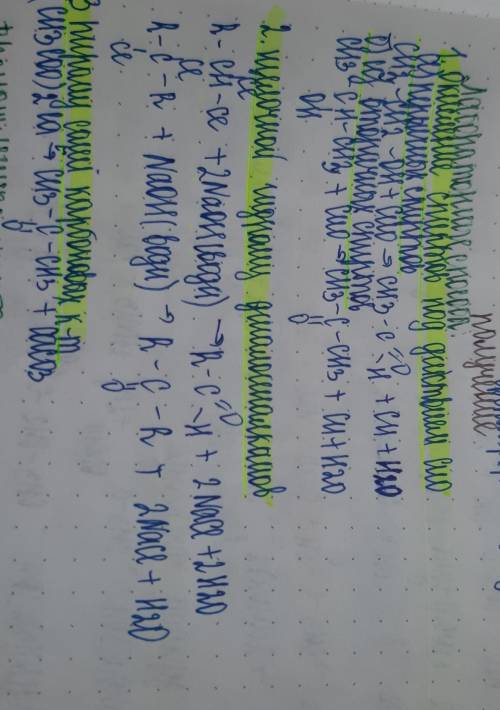 получение
Лабораторные способы
1. окисление спиртов под действием CuO
а) первичных спиртов
CH3-CH2-OH + CuO → CH3-C=O H + Cu + H2O
б) из вторичных спиртов
CH3-CH-CH3 + CuO → CH3-C-CH3 + Cu + H2O
OH O
2. щелочной гидролиз дигалогеналканов
R-CH-Cl + 2NaOH (водн) → R-C=O H + 2NaCl + 2H2O
Cl
Cl
R-C-R + NaOH (водн) → R-C-R + 2NaCl + H2O
Cl O
3 пиролиз солей карбоновых к-т
(CH3COO)2Ca → CH3-C-CH3 + CaCO3
O